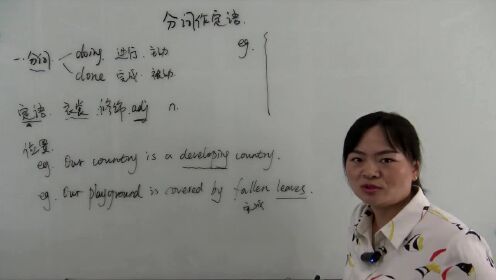 分词作定语.
一.分词 doing 进行.主动 eg.
done 完成 被动.
定语. 衣裳 修饰 adj n.
位置
eg. Our country is a developing country.
eg. Our playground is covered by fallen leaves.
完成